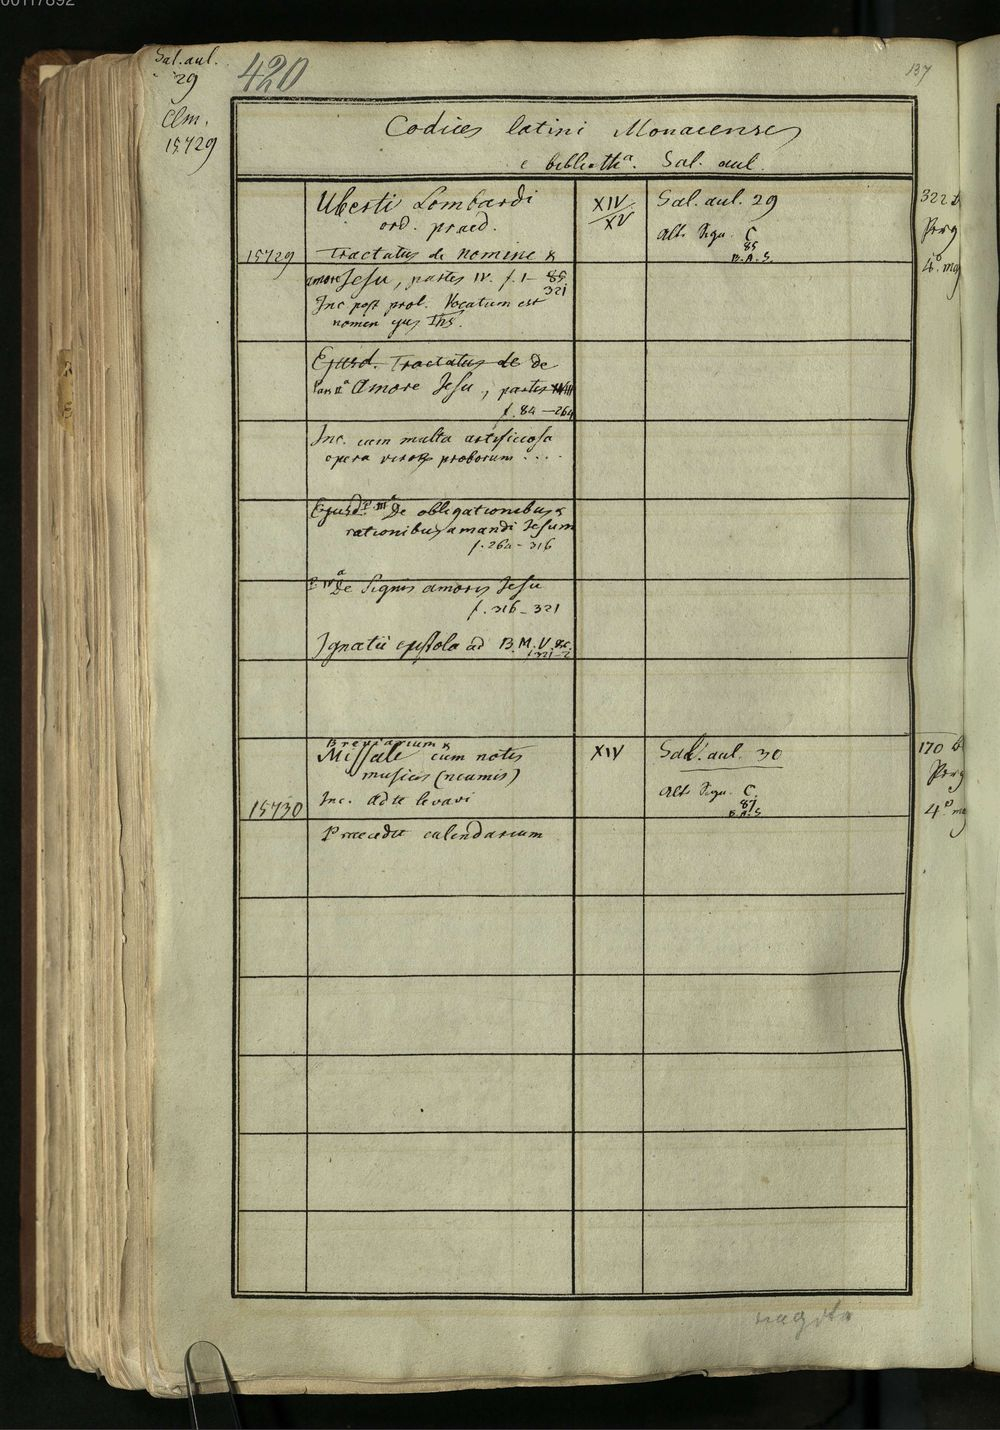 Sal. aul.
29
Clm.
15729
420
137
Codices latini Monacenses
e biblioth[a]. Sal. aul.
Uberti Lombardi
ord. praed.
XIV/XV
Sal. aul. 29
Alt. Sign. C
85
B.A.S.
322
Perg
4°. mg
15729
Tractatus de nomine &
amore Jesu, partes IV. f. 1-85.
321
Inc post prol. Vocatum est
nomen ejus Ihs.
Ejusd. Tractatus de de
Pars IIa Amore Jesu, partes
f. 84-264
Inc. cum multa artificiosa
opera proborum ....
Ejusd. P. IIIa De obligationibus &
rationibus amandi Jesum
f. 264-316
P. IVa De signis amoris Jesu
f. 316-321
Ignatii epistola ad B.M.V. &c.
f. 321-2
Breviarium &
Missale cum notis
musicis (neumis)
XIV
Sal. aul. 30
Alt. Sign. C.
87
B.A.S
170
Perg
4°. m
15730
Inc. Ad te levavi
Praecedit calendarium